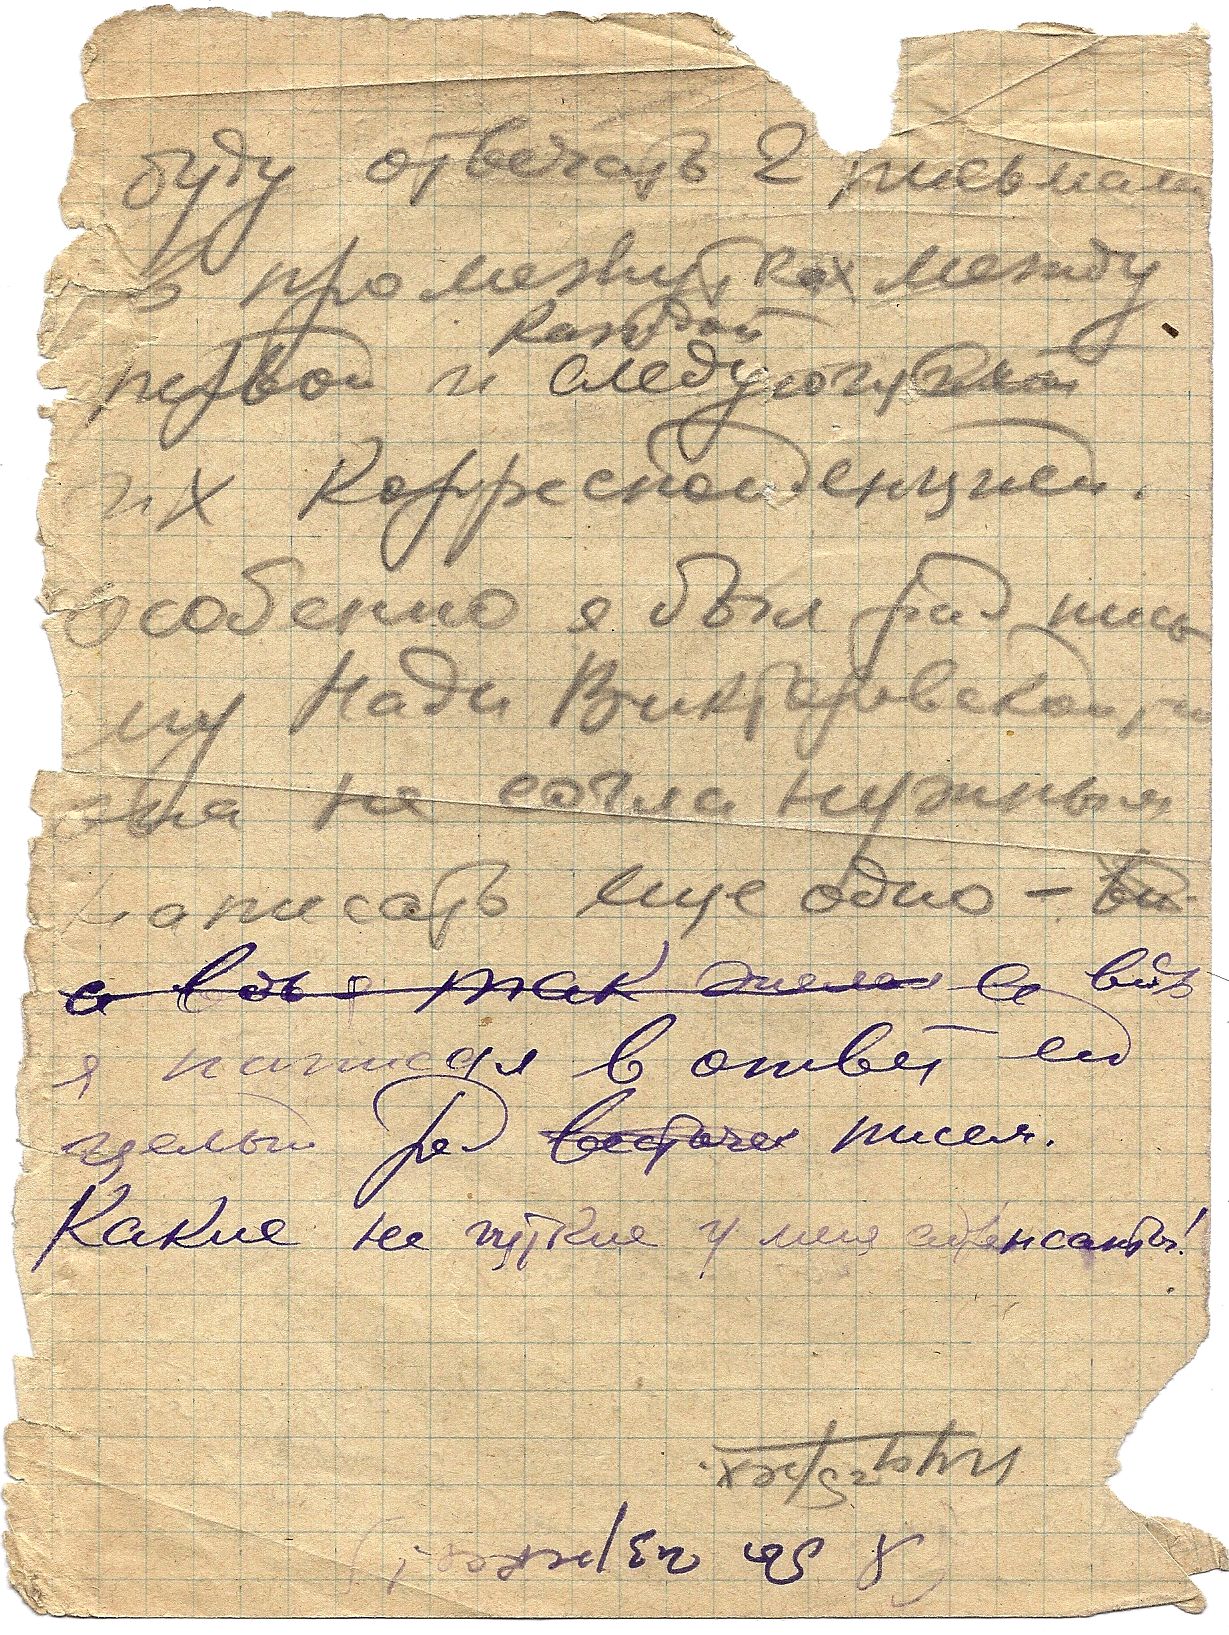 буду отвечать 2 письмами
в промежутках между
каждой
первой и следующей
их корреспонденцией.
особенно я был рад пись
му Нади Викторовской, но
она не сочла нужным
написать еще одно –
а ведь я так желал а ведь
я написал в ответ ей
целый ряд писем.
Какие не чуткие у меня абоненты!